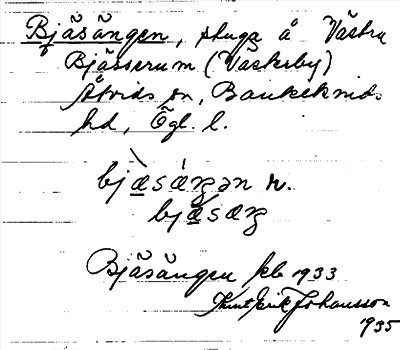 Bjäsängen, stuga å Västra
Bjässerum (Västerby)
Åtvids sn, Bankekinds
hd, Ögl. l.
bjæsáŋən n.
bjæsæŋ
Bjäsängen, skb 1933
Knut Erik Johansson
1935